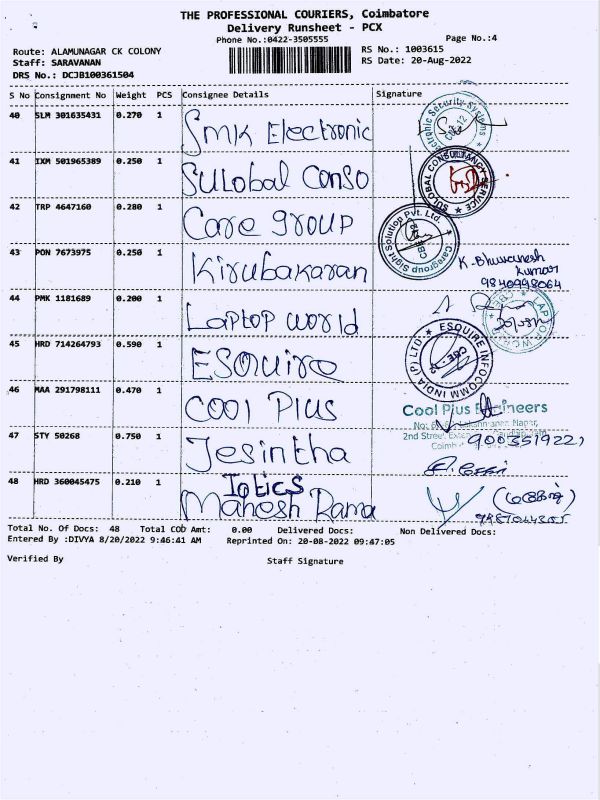 THE PROFESSIONAL COURIERS, Coimbatore
Delivery Runsheet - PCX
Phone No.:0422-3505555
Page No.:4
Route: ALAMUNAGAR CK COLONY
RS No.: 1003615
Staff: SARAVANAN
RS Date: 20-Aug-2022
DRS No.: DCJB100361504
S No Consignment No Weight PCS Consignee Details Signature
40 SLM 301635431 0.270 1 SMK Electronic
41 IXM 501965389 0.250 1 SULobal Conso
SULOBAL CONSULTANCY SERVICE
42 TRP 4647160 0.280 1 Care group
Caregroup Sight Solution Pvt. Ltd.
43 PON 7673975 0.250 1 Kirubakaran
K. Bhuvanesh
Kumar
9840998064
44 PMK 1181689 0.200 1 Laptop world
LAPTOP WORLD
45 HRD 714264793 0.590 1 ESQUIRE
ESQUIRE INFOCOMM INDIA (P) LTD
CBE
46 MAA 291798111 0.470 1 COOL PLUS
Cool Plus Engineers
2nd Street
47 STY 50268 0.750 1 Jesintha
48 HRD 360045475 0.210 1 Iotics
Mahesh Rama
Total No. Of Docs: 48 Total COD Amt: 0.00 Delivered Docs: Non Delivered Docs:
Entered By :DIVYA 8/20/2022 9:46:41 AM Reprinted On: 20-08-2022 09:47:05
Verified By Staff Signature